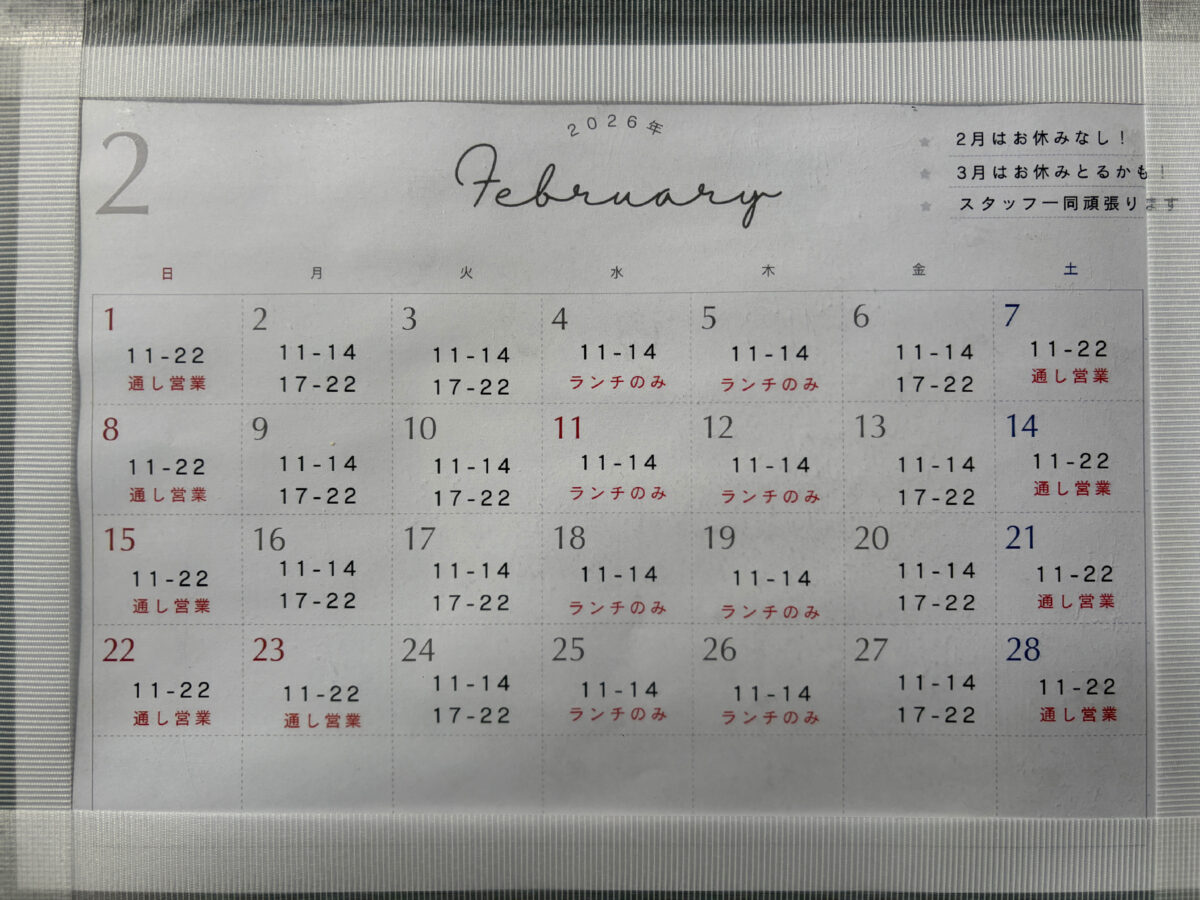 2
2026年
February
2月はお休みなし！
3月はお休みとるかも！
スタッフ一同頑張ります
日 月 火 水 木 金 土
1 2 3 4 5 6 7
11-22 11-14 11-14 11-14 11-14 11-14 11-22
通し営業 17-22 17-22 ランチのみ ランチのみ 17-22 通し営業
8 9 10 11 12 13 14
11-22 11-14 11-14 11-14 11-14 11-14 11-22
通し営業 17-22 17-22 ランチのみ ランチのみ 17-22 通し営業
15 16 17 18 19 20 21
11-22 11-14 11-14 11-14 11-14 11-14 11-22
通し営業 17-22 17-22 ランチのみ ランチのみ 17-22 通し営業
22 23 24 25 26 27 28
11-22 11-22 11-14 11-14 11-14 11-14 11-22
通し営業 通し営業 17-22 ランチのみ ランチのみ 17-22 通し営業